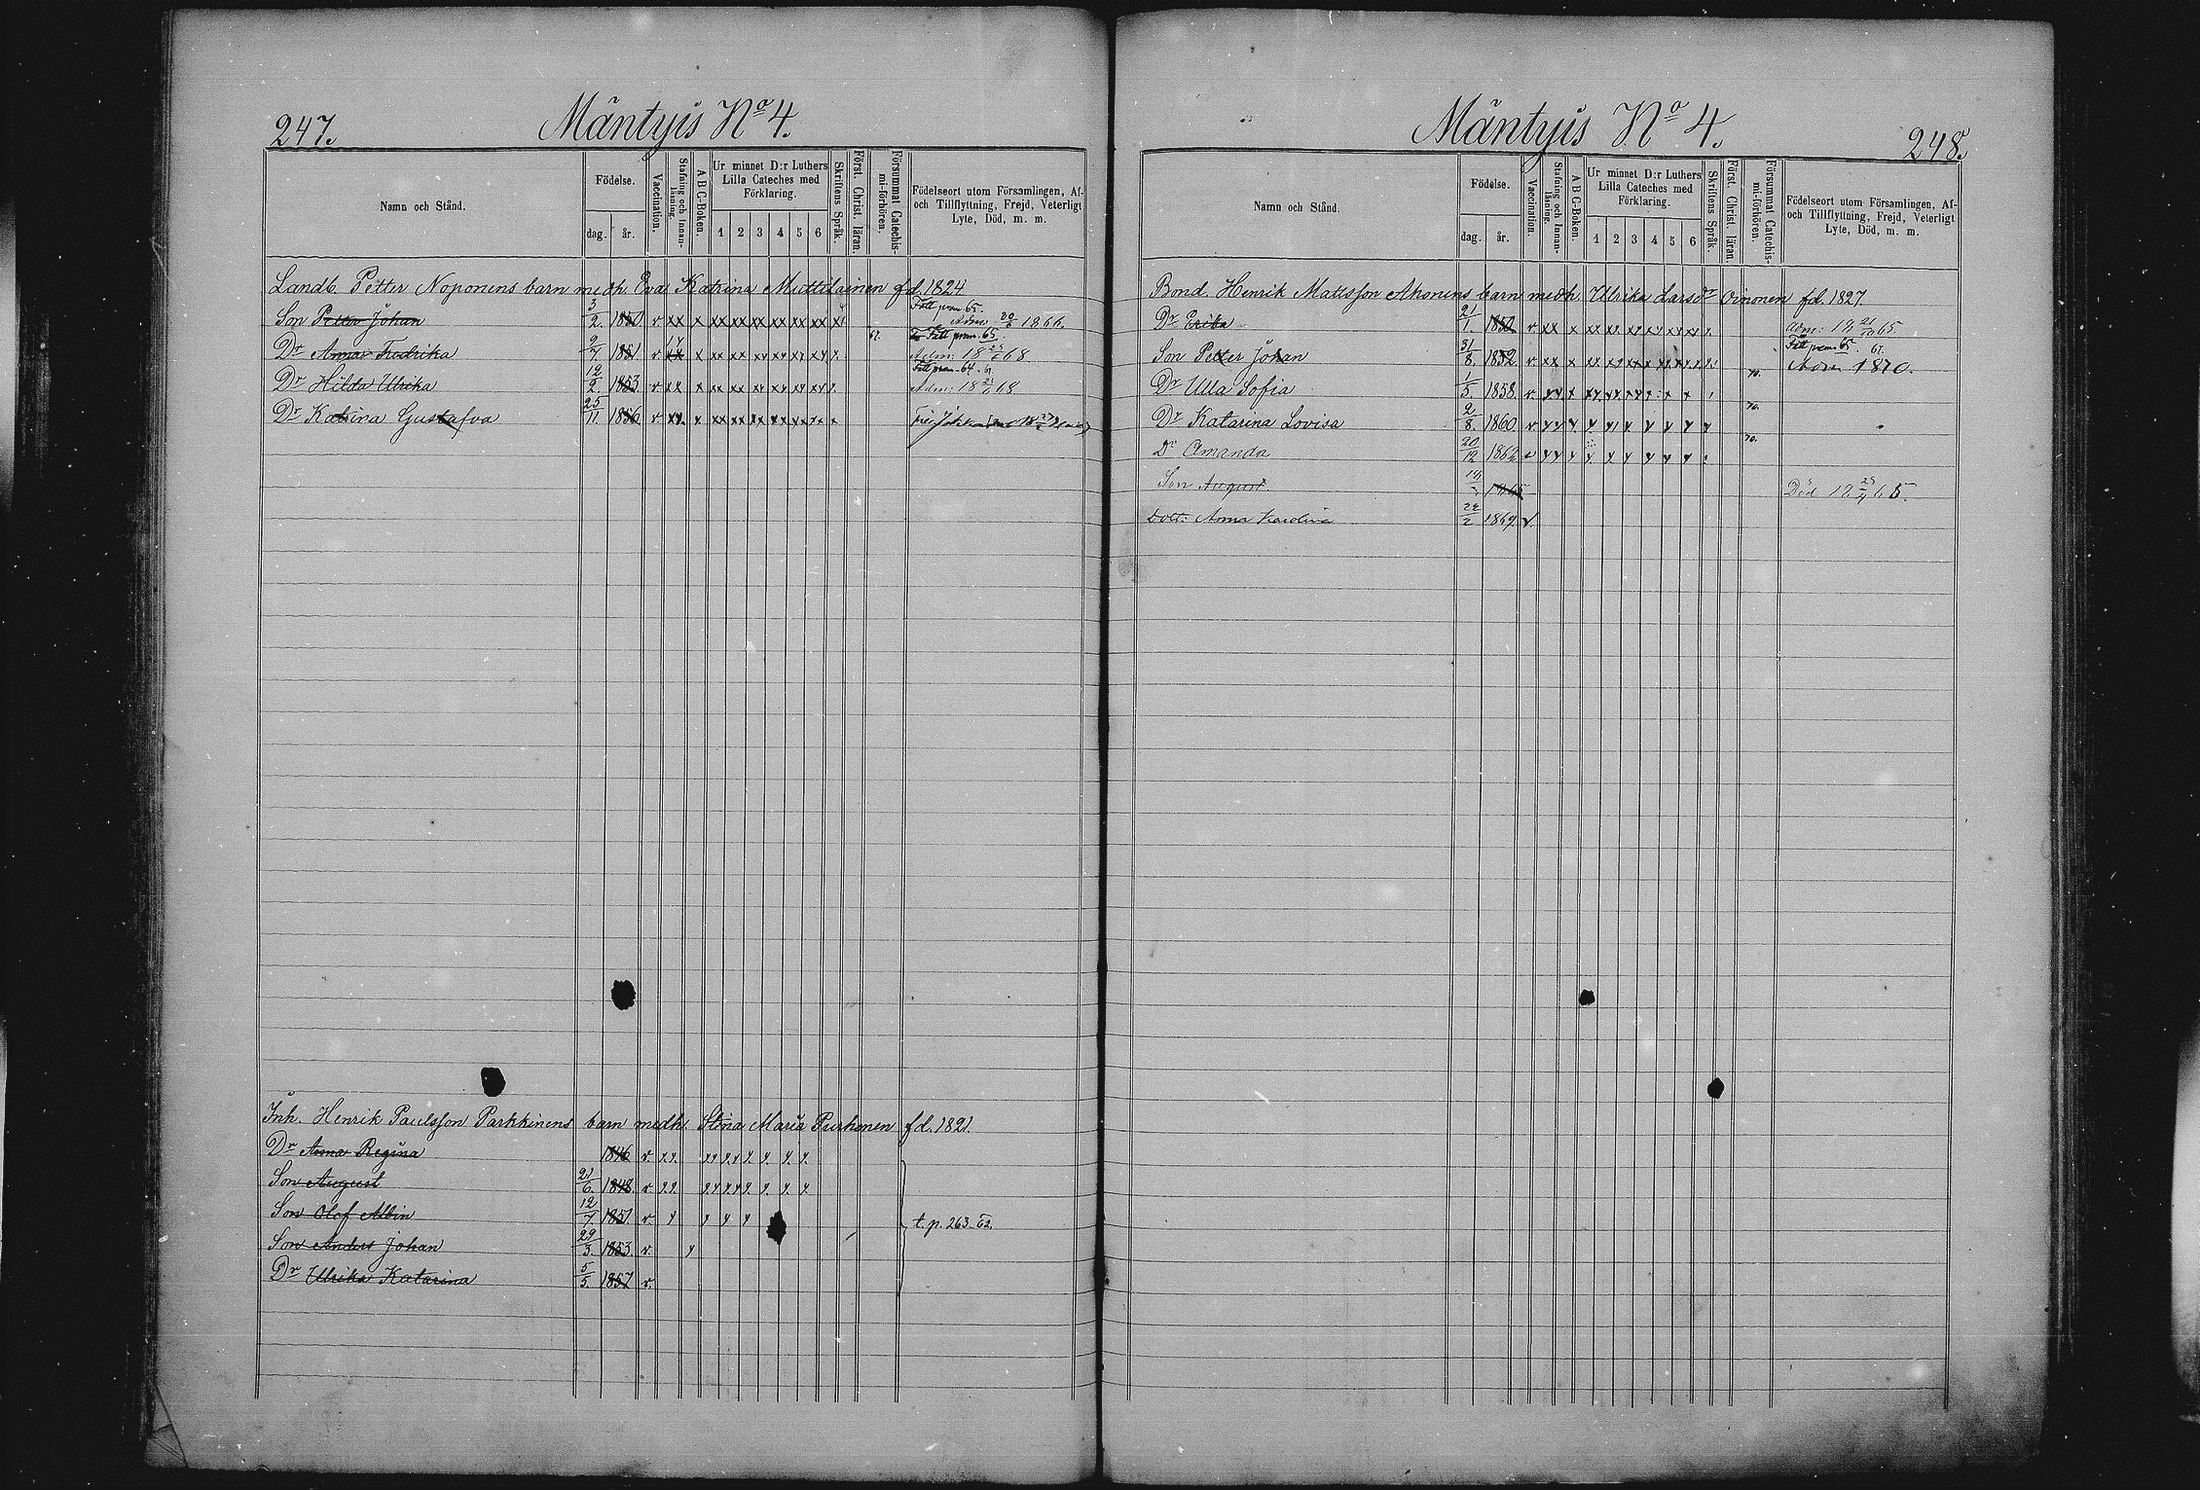 247.
Mäntyis No 4.
Namn och Stånd.
Födelse.
dag.
år.
Vaccination.
Stafning och Innan-läsning.
A B C-Boken.
Ur minnet D:r Luthers
Lilla Cateches med
Förklaring.
1 2 3 4 5 6
Skriftens Språk.
Först. Christ. läran.
Försummat Catechis-mi-förhören.
Födelseort utom Församlingen, Af-
och Tillflyttning, Frejd, Veterligt
Lyte, Död, m. m.
Landb. Petter Noponens barn medh. Eva Katrina Mattilainen fd. 1824
Son Petter Johan 3/2. 1850 v xx x xx xx xx xx xx xx Fått prem 65. Adm: 1866.
Dr Anna Fredrika 9/7 1851. v x xx xx xx xx xx Fått prem. 65. Adm: 18 68
Dr Hilda Ulrika 12/2. 1853. v xx x xx xx xx xx xx Fått prem. 64. Adm: 18 68
Dr Katrina Gustafva 25/11. 1856 v xx x xx xx xx xx xx
Inh. Henrik Paulsson Parkkinens barn medh. Stina Maria Purhonen fd. 1821.
Dr Anna Regina 1846 v. x.x.
Son August 21/6. 1848. v. x.x.
Son Olof Albin 12/7 1851. v t. p. 263 - 62.
Son Anders Johan 29/3. 1853. v.
Dr Ulrika Katarina 5/5. 1857 v.
Mäntyis No 4.
248.
Namn och Stånd.
Födelse.
dag.
år.
Vaccination.
Stafning och Innan-läsning.
A B C-Boken.
Ur minnet D:r Luthers
Lilla Cateches med
Förklaring.
1 2 3 4 5 6
Skriftens Språk.
Först. Christ. läran.
Försummat Catechis-mi-förhören.
Födelseort utom Församlingen, Af-
och Tillflyttning, Frejd, Veterligt
Lyte, Död, m. m.
Bond. Henrik Matsson Ahonens barn medh. Ulrika Larsdr Oinonen fd. 1827
Dr Erika 21/1. 1850 v xx x xx xx xx xx xx xx Adm: 18 65.
Son Petter Johan 31/8. 1852 v xx x xx xx xx xx xx xx Fått prem 65. 67. Adm 1870.
Dr Ulla Sofia 1/5. 1858. v 70.
Dr Katarina Lovisa 2/8. 1860 v 70.
Dr Amanda 20/12 1862 v 70.
Son August 1865 Död 18 65.
Dott: Anna Karolina 28/2 1867. v